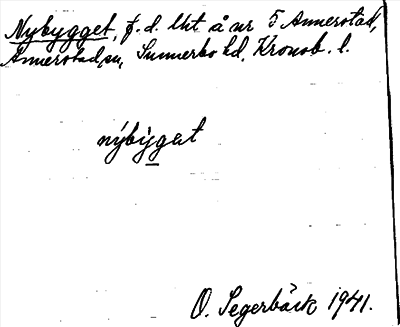 Nybygget, f.d. lht å nr 5 Annerstad,
Annerstad sn, Sunnerbo hd, Kronob. l.
nýbỳgat
O. Segerbäck 1941.